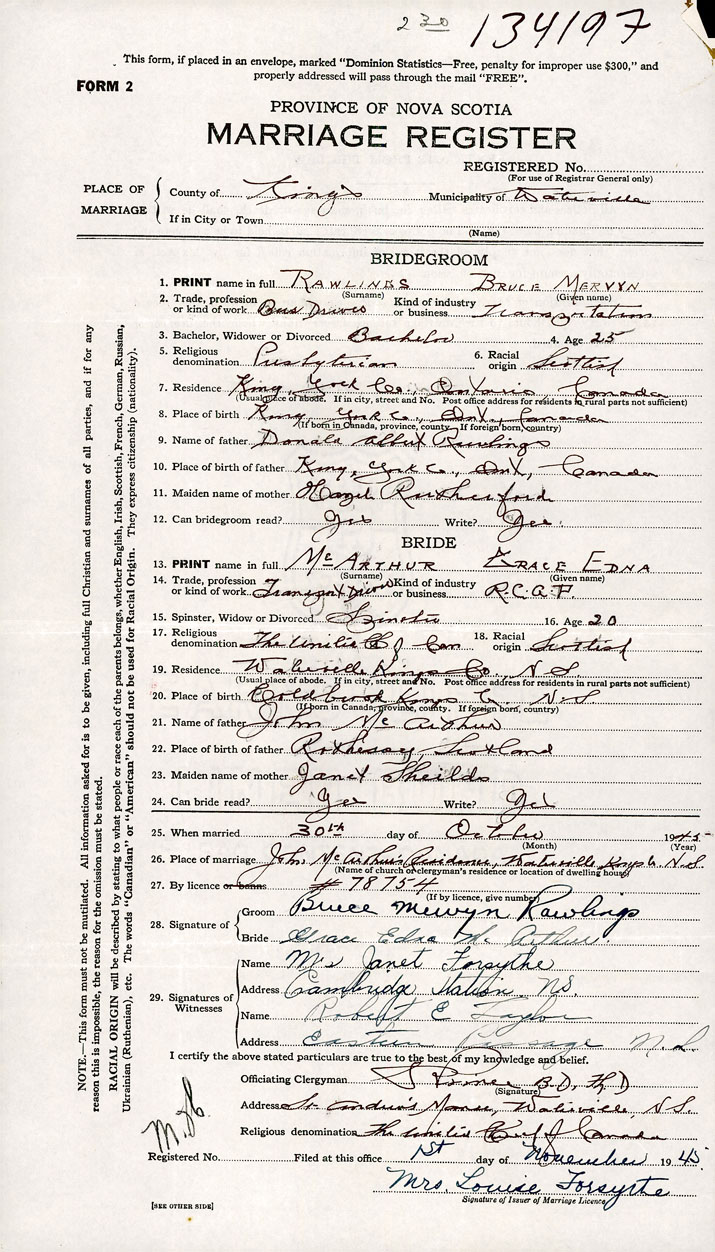 230 134197
This form, if placed in an envelope, marked "Dominion Statistics—Free, penalty for improper use $300," and
properly addressed will pass through the mail "FREE".
FORM 2
PROVINCE OF NOVA SCOTIA
MARRIAGE REGISTER
REGISTERED No.
(For use of Registrar General only)
PLACE OF MARRIAGE
County of Kings Municipality of Waterville
If in City or Town
(Name)
BRIDEGROOM
1. PRINT name in full RAWLINGS BRUCE MERVYN
(Surname) (Given name)
2. Trade, profession or kind of work Bus Driver Kind of industry or business Transportation
3. Bachelor, Widower or Divorced Bachelor 4. Age 25
5. Religious denomination Presbyterian 6. Racial origin Scottish
7. Residence King, York Co., Ontario, Canada
(Usual place of abode. If in city, street and No. Post office address for residents in rural parts not sufficient)
8. Place of birth King York Co., Ont., Canada
(If born in Canada, province, county. If foreign born, country)
9. Name of father Donald Albert Rawlings
10. Place of birth of father King, York Co., Ont., Canada
11. Maiden name of mother Hazel Rutherford
12. Can bridegroom read? Yes Write? Yes.
BRIDE
13. PRINT name in full McARTHUR GRACE EDNA
(Surname) (Given name)
14. Trade, profession or kind of work Transport Driver Kind of industry or business R.C.A.F.
15. Spinster, Widow or Divorced Spinster 16. Age 20
17. Religious denomination The United Ch of Can 18. Racial origin Scottish
19. Residence Waterville Kings Co., N.S.
(Usual place of abode. If in city, street and No. Post office address for residents in rural parts not sufficient)
20. Place of birth Coldbrook Kings Co. N.S
(If born in Canada, province, county. If foreign born, country)
21. Name of father John McArthur
22. Place of birth of father Rothesay, Scotland
23. Maiden name of mother Janet Sheilds
24. Can bride read? Yes Write? Yes
25. When married 30th day of October 1945
(Month) (Year)
26. Place of marriage John McArthur's Residence, Waterville Kings Co. N.S
(Name of church or clergyman's residence or location of dwelling house)
27. By licence or banns # 78754
(If by licence, give number)
28. Signature of
Groom Bruce Mervyn Rawlings
Bride Grace Edna McArthur.
29. Signatures of Witnesses
Name Mrs Janet Forsythe
Address Cambridge Station NS.
Name Robert E Taylor
Address Eastern Passage N.S.
I certify the above stated particulars are true to the best of my knowledge and belief.
Officiating Clergyman Prince B.D, Th.D
(Signature)
Address St. Andrew's Manse, Waterville, N.S.
Religious denomination The United Ch of Canada
Registered No. Filed at this office 1st day of November 1945
Mrs. Louise Forsythe
Signature of Issuer of Marriage Licence
[SEE OTHER SIDE]
NOTE.—This form must not be mutilated. All information asked for is to be given, including full Christian and surnames of all parties, and if for any
reason this is impossible, the reason for the omission must be stated.
RACIAL ORIGIN will be described by stating to what people or race each of the parents belongs, whether English, Irish, Scottish, French, German, Russian,
Ukrainian (Ruthenian), etc. The words "Canadian" or "American" should not be used for Racial Origin. They express citizenship (nationality).